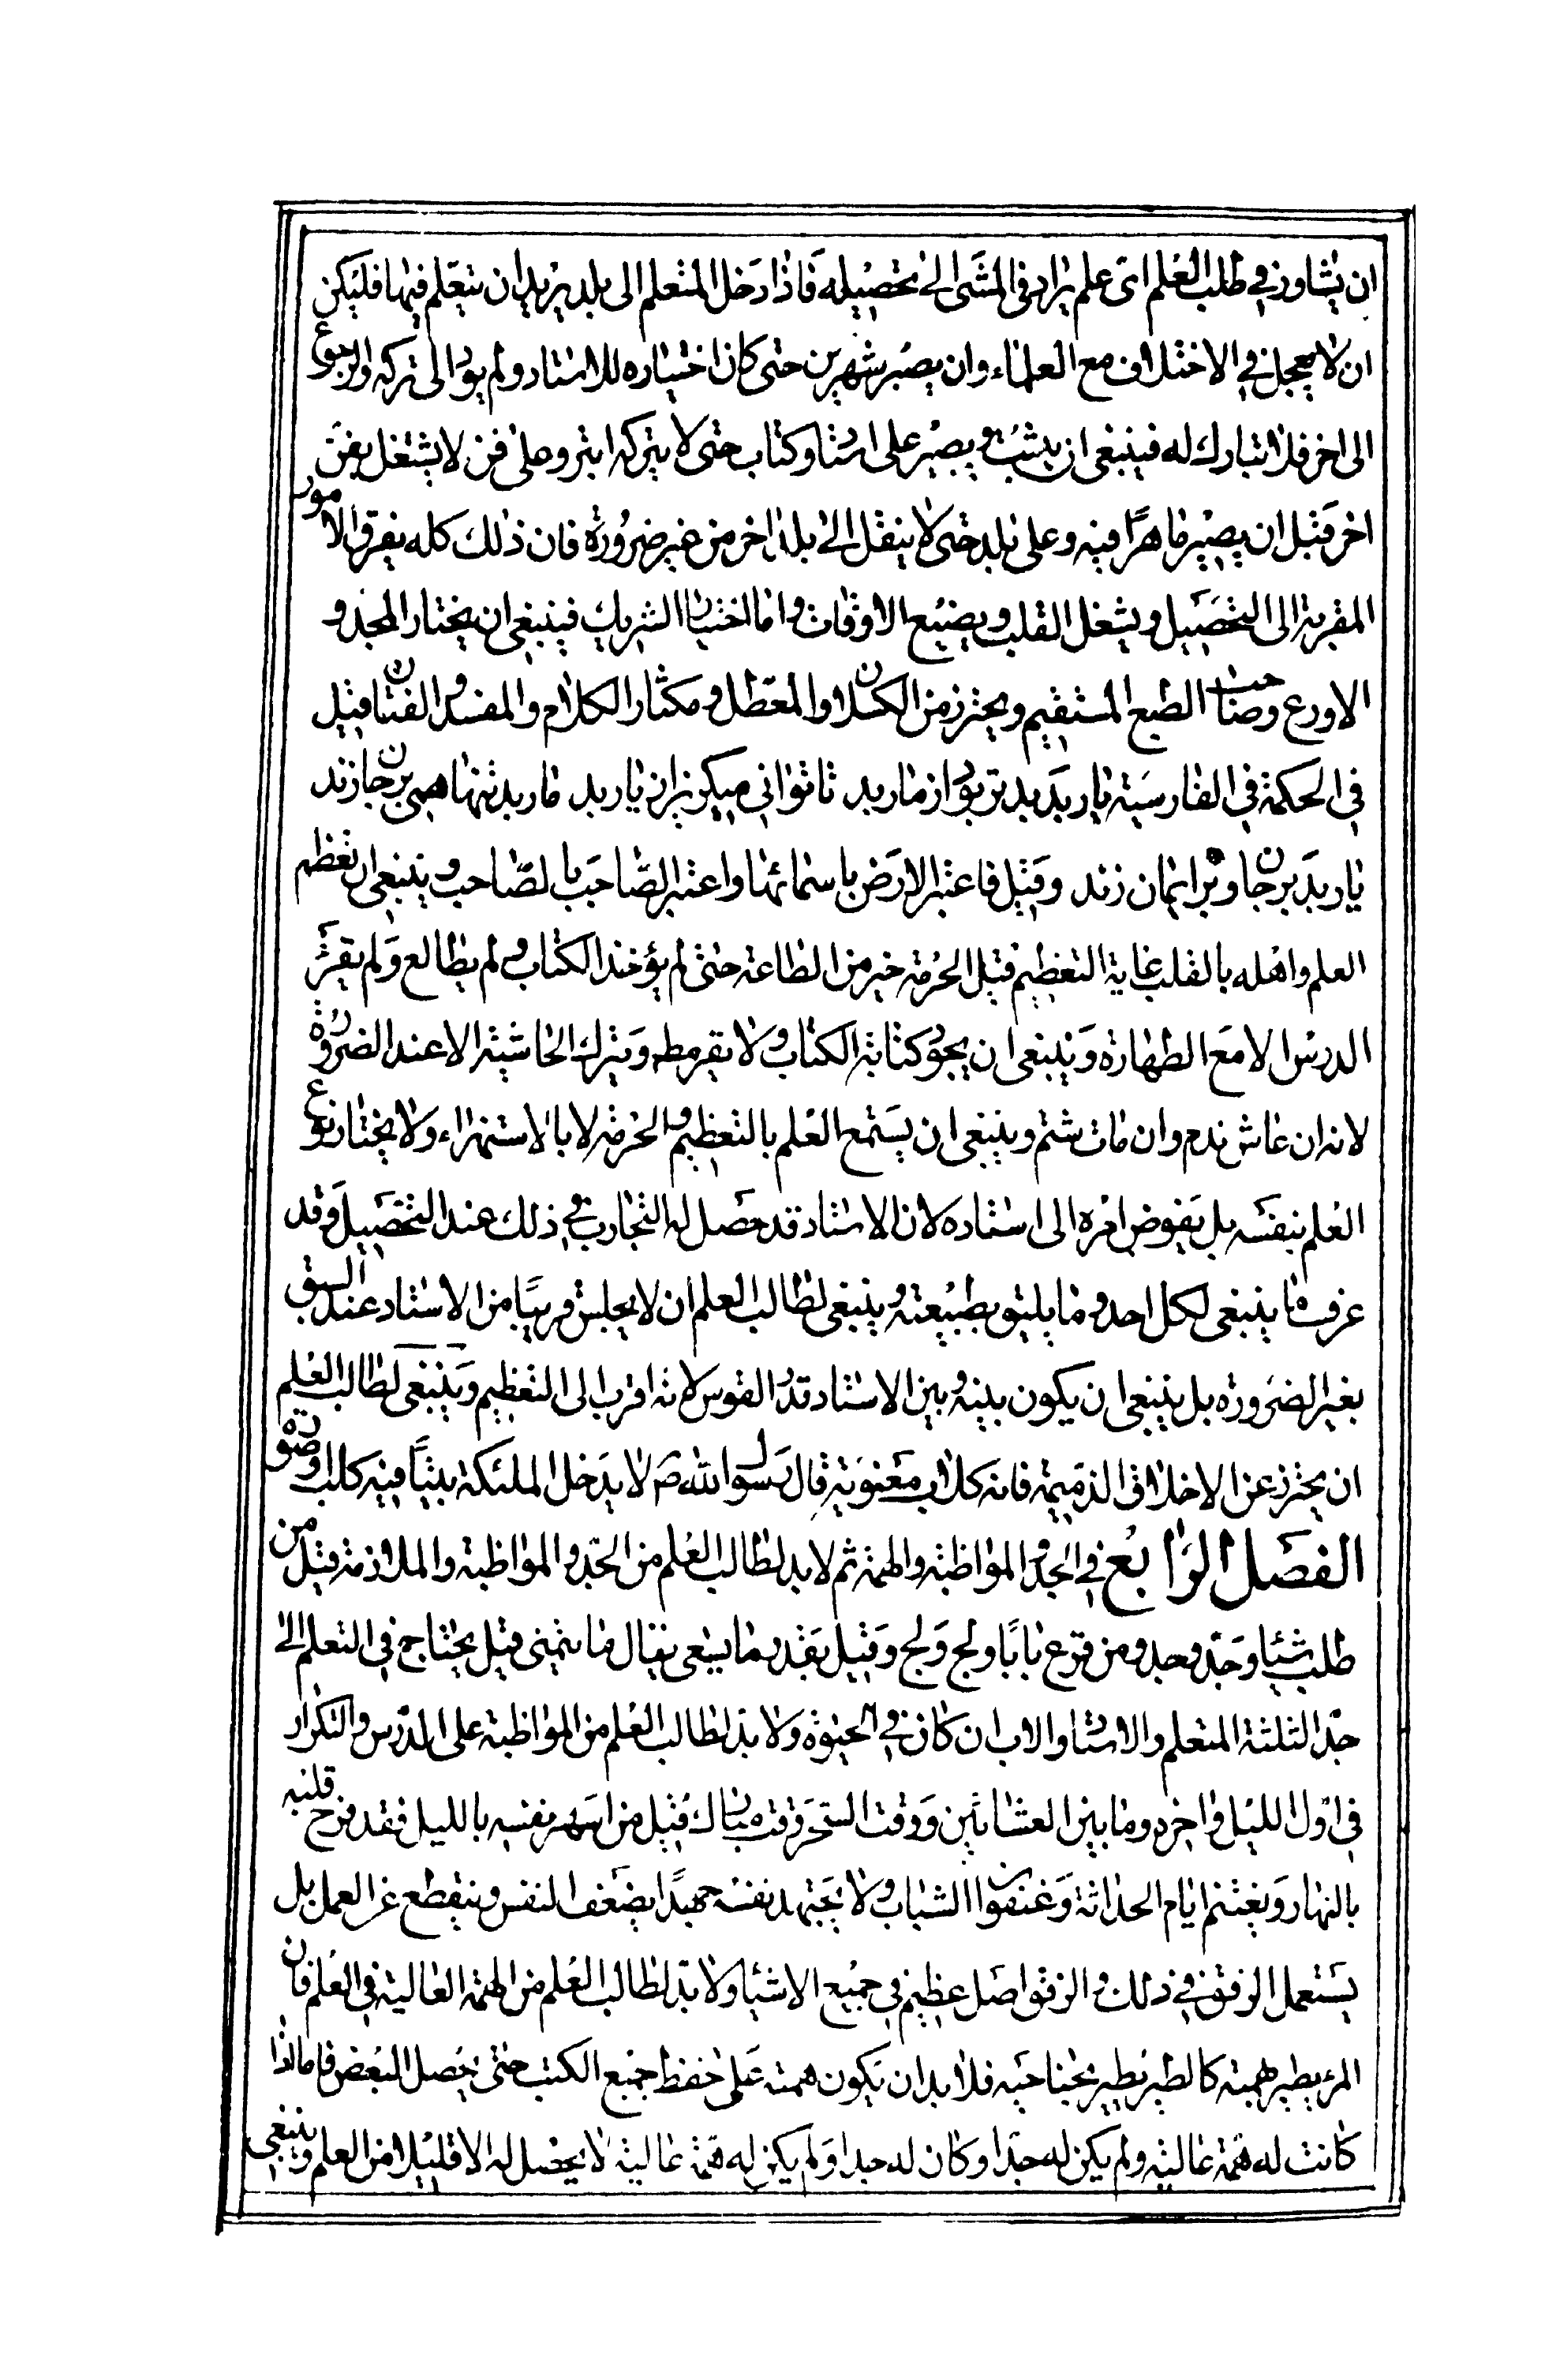 ان يشاور في طلب العلم اى علم يراد في المشى الى تحصيله فاذا دخل المتعلم الى بلد يريد ان يتعلم فيها فليكن
ان لا يعجل في الاختلاف مع العلماء وان يصبر شهرين حتى كان اختياره للاستاد ولم يؤد الى تركه والرجوع
الى اخر فلا يبارك له فينبغى ان يثبت ويصبر على استاد وكتاب حتى لا يتركه ابتر وعلى فن لا يشتغل بفن
اخر قبل ان يصير ماهرًا فيه وعلى بلد حتى لا ينقل الى بلد اخر من غير ضرورة فان ذلك كله يفرق الامور
المقربة الى التحصيل ويشغل القلب ويضيع الاوقات واما اختيار الشريك فينبغى ان يختار المجد و
الاورع وصاحب الطبع المستقيم ويحترز من الكسلان والمعطل ومكثار الكلام والمفسد والفتان قيل
في الحكمة في الفارسية يار بد بدتر بود از مار بد تا توانى ميكريز از يار بد مار بد تنها همى بر جان زند
يار بد بر جان و بر ايمان زند وقيل فاعتبر الارض باسمائها واعتبر الصاحب بالصّاحب وينبغى ان تعظم
العلم واهله بالقلب غاية التعظيم قيل الحرمة خير من الطاعة حتى لم يؤخذ الكتاب ولم يطالع وَلم يقرَء
الدرس الا مع الطهارة وَينبغى ان يجود كتابة الكتاب ولا يقرمط وَيترك الحاشية الا عند الضرورة
لانه ان عاش ندم وان مات شتم وينبغى ان يستمع العلم بالتعظيم والحرمة لا بالاستهزاء ولا يختار نوع
العلم بنفسه بل يفوض امره الى استاده لان الاستاد قد حصل له التجارب في ذلك عند التحصيل وَقد
عرف ما ينبغى لكل احد وما يليق بطبيعته وينبغى لطالب العلم ان لا يجلس قريبًا من الاستاد عند السبق
بغير الضرورة بل ينبغى ان يكون بينه وبين الاستاد قدر القوس لانه اقرب الى التعظيم وَينبغى لطالب العلم
ان يحترز عن الاخلاق الذميمة فانه كلاب معنوية قال رسول الله ص لا يدخل الملئكة بيتًا فيه كلب او صورة
الفصل الرّابع في الجد والمواظبة والهمة ثم لا بد لطالب العلم من الجّد والمواظبة والملازمة قيل من
طلب شيئا وَجّد وجد ومن قرع بابًا ولج وَلج وَقيل بقدر ما يسعى ينال ما يتمنى قيل يحتاج في التعلم الى
جّد الثلثة المتعلم والاستاد والاب ان كان في الحيوة ولا بدّ لطالب العلم من المواظبة على الدّرس والتكرار
في اوّل الليل واخره وما بين العشائين وَوقت السّحر وقت مبارك قيل من اسهر نفسه بالليل فقد فرح قلبه
بالنهار وَيغتنم ايام الحداثة وَعنفوان الشباب ولا يجتهد نفسه جهدًا يضعف النفس وينقطع عن العمل بل
يستعمل الرفق في ذلك والرفق اصل عظيم في جميع الاشياء ولا بدّ لطالب العلم من الهمة العالية في العلم فان
المرء يطير همته كالطير يطير بجناحيه فلا بد ان يكون همته عَلى حفظ جميع الكتب حتى يحصل البعض فاما اذا
كانت له همّة عالية ولم يكن له جدّا وكان له جدا وَلم يكن له همّة عالية لا يحصل له الا قليلا من العلم وينبغى